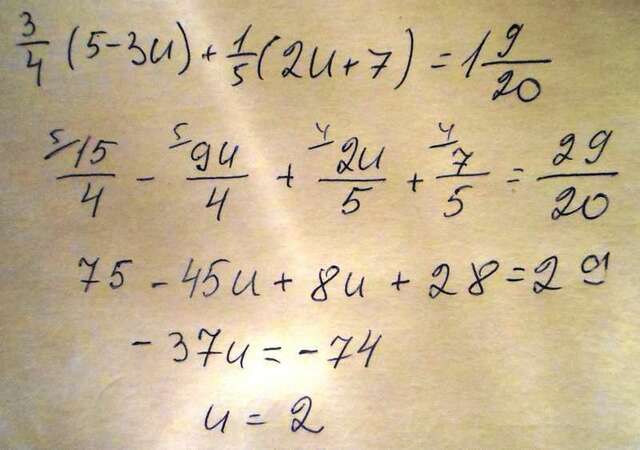 3/4 (5-3u) + 1/5 (2u+7) = 1 9/20
5 15/4 - 5 9u/4 + 4 2u/5 + 4 7/5 = 29/20
75 - 45u + 8u + 28 = 29
- 37u = - 74
u = 2